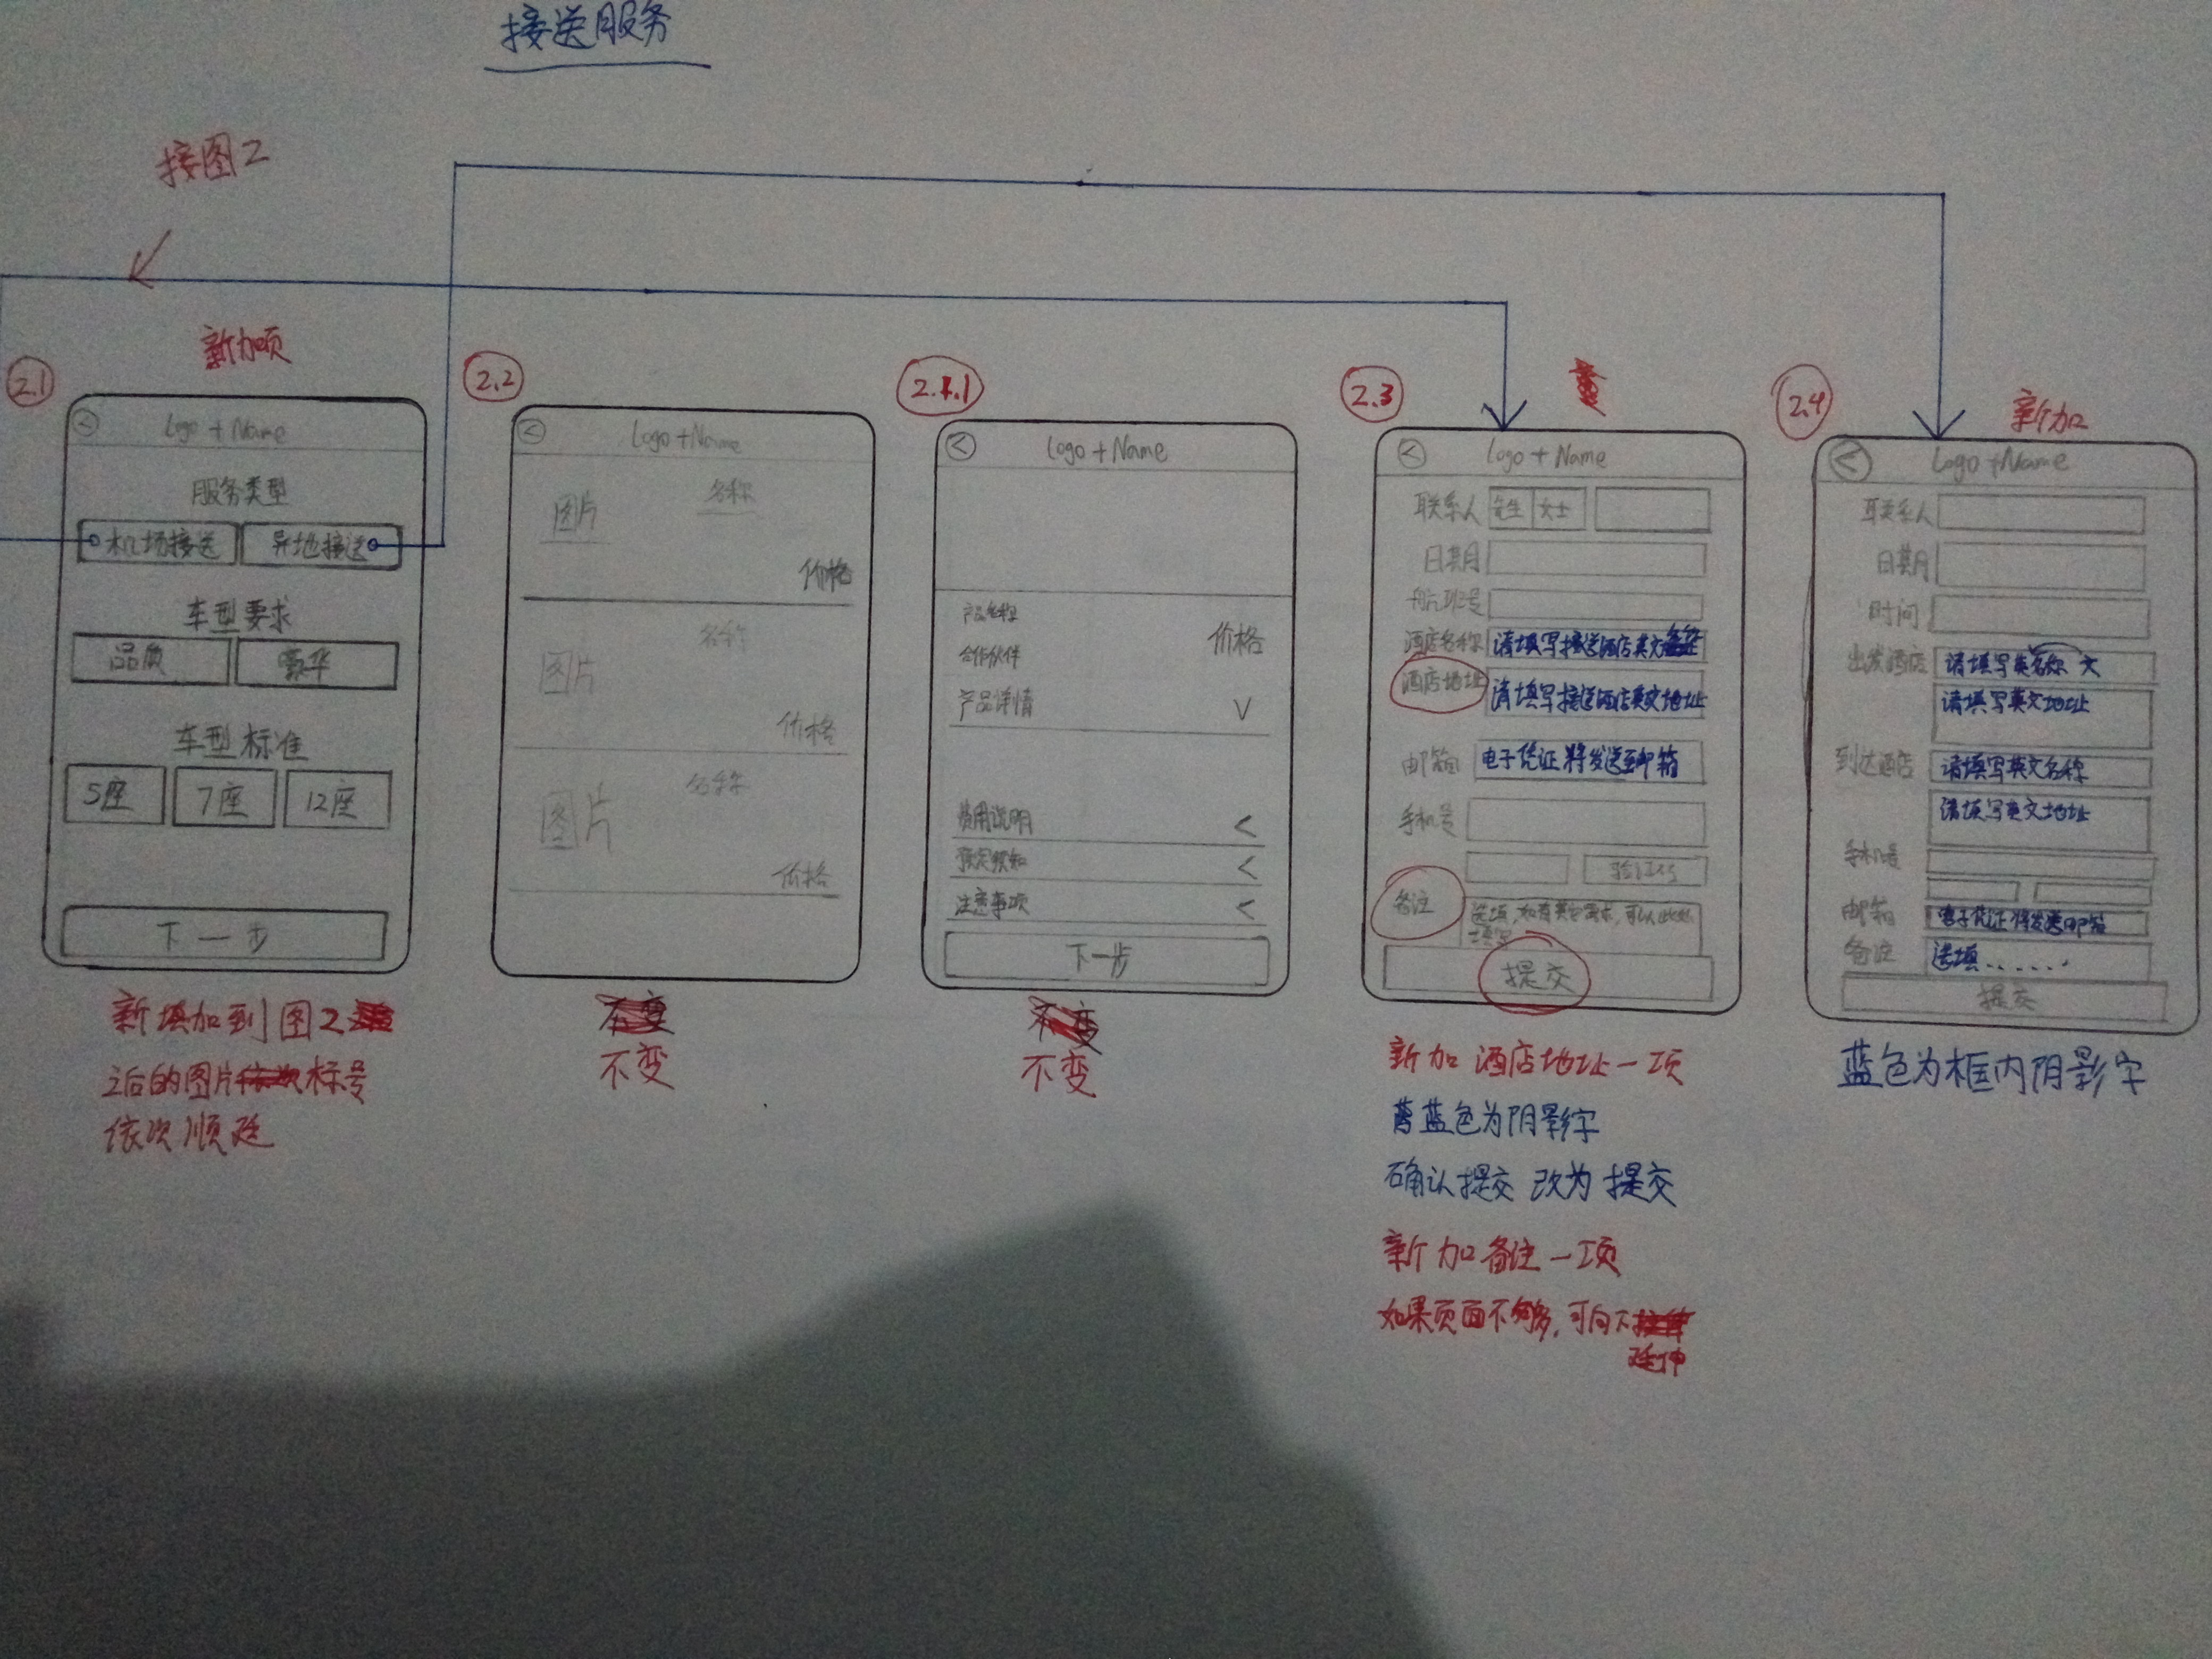 接送服务
接图2
新加项
2.1
< Logo + Name
服务类型
机场接送 异地接送
车型要求
品质 豪华
车型标准
5座 7座 12座
下一步
新填加到图2
之后的图片标号
依次顺延
2.2
< Logo + Name
图片 名称
价格
图片 名称
价格
图片 名称
价格
不变
2.1.1
< Logo + Name
产品名称
价格
合作伙伴
产品详情 V
费用说明 <
预定须知 <
注意事项 <
下一步
不变
2.3
< Logo + Name
联系人 先生 女士
日期
航班号
酒店名称 请填写接送酒店英文
酒店地址 请填写接送酒店英文地址
邮箱 电子凭证将发送至邮箱
手机号
验证码
备注 选填,如有其它需求,可以在此处
填写
提交
新加 酒店地址一项
蓝色为阴影字
确认提交 改为 提交
新加备注一项
如果页面不够多,可向下
延伸
2.4
新加
< Logo + Name
联系人
日期
时间
出发酒店 请填写英名称 文
请填写英文地址
到达酒店 请填写英文名称
请填写英文地址
手机号
邮箱 电子凭证将发送邮箱
备注 选填......
提交
蓝色为框内阴影字